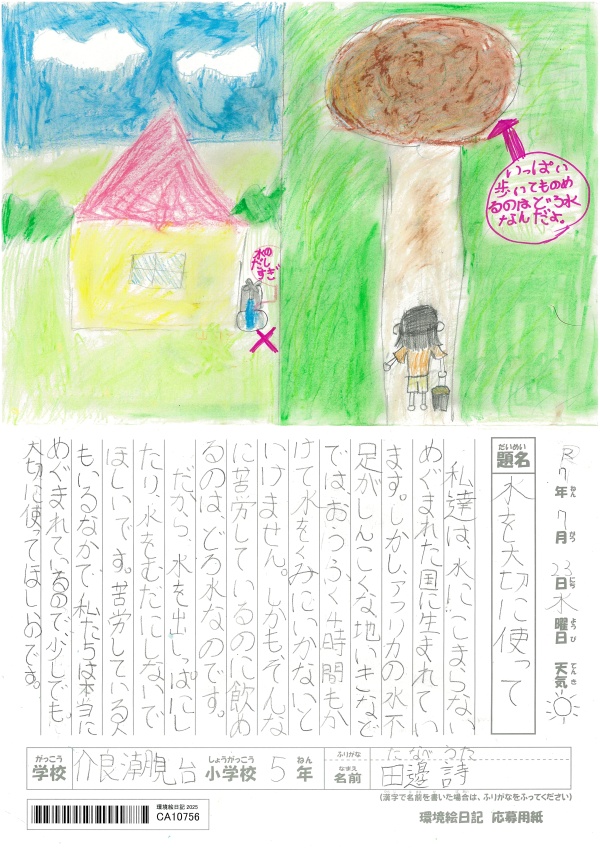 水の
だし
すぎ
いっぱい
歩いてものめ
るのはどろ水
なんだよ。
R7年7月23日水曜日 天気
ねん がつ にち ようび てんき
だいめい
題名
水を大切に使って
私達は、水にこまらない
めぐまれた国に生まれてい
ます。しかし、アフリカの水不
足がしんこくな地いきなど
では、おうふく4時間もか
けて水をくみにいかないと
いけません。しかもそんな
に苦労しているのに飲め
るのは、どろ水なのです。
だから、水を出しっぱにし
たり、水をむだにしないで
ほしいです。苦労している人
もいるなかで、私たちは本当に
めぐまれているので、少しでも
大切に使ってほしいのです。
がっこう しょうがっこう ねん
学校 介良潮見台 小学校 5 年
ふりがな たなべ うた
なまえ
名前 田邊 詩
(漢字で名前を書いた場合は、ふりがなをふってください)
環境絵日記 2025
CA10756
環境絵日記 応募用紙